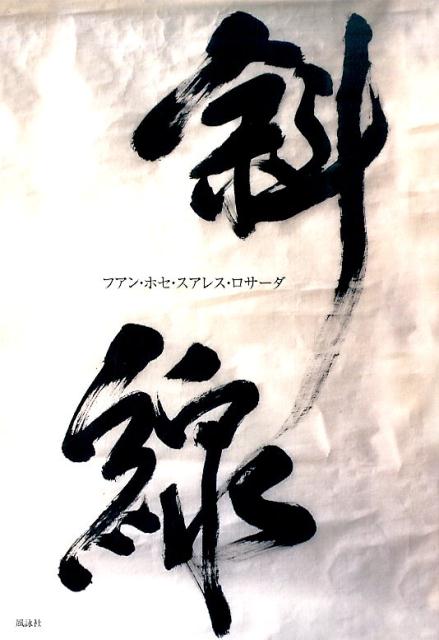 斜
フアン・ホセ・スアレス・ロサーダ
線
風詠社